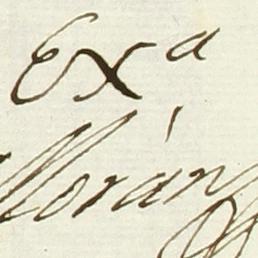 Exª
Morán